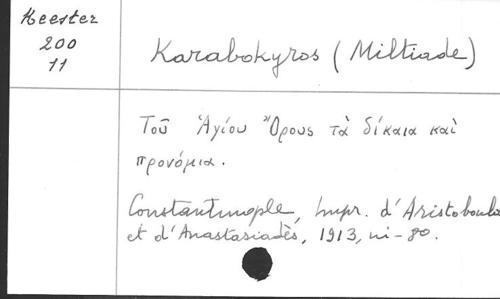 Heester
200
11
Karabokyros (Miltiade)
Τοῦ Ἁγίου Ὄρους τὰ δίκαια καὶ
προνόμια.
Constantinople, Impr. d'Aristoboulo
et d'Anastasiadès, 1913, in-80.